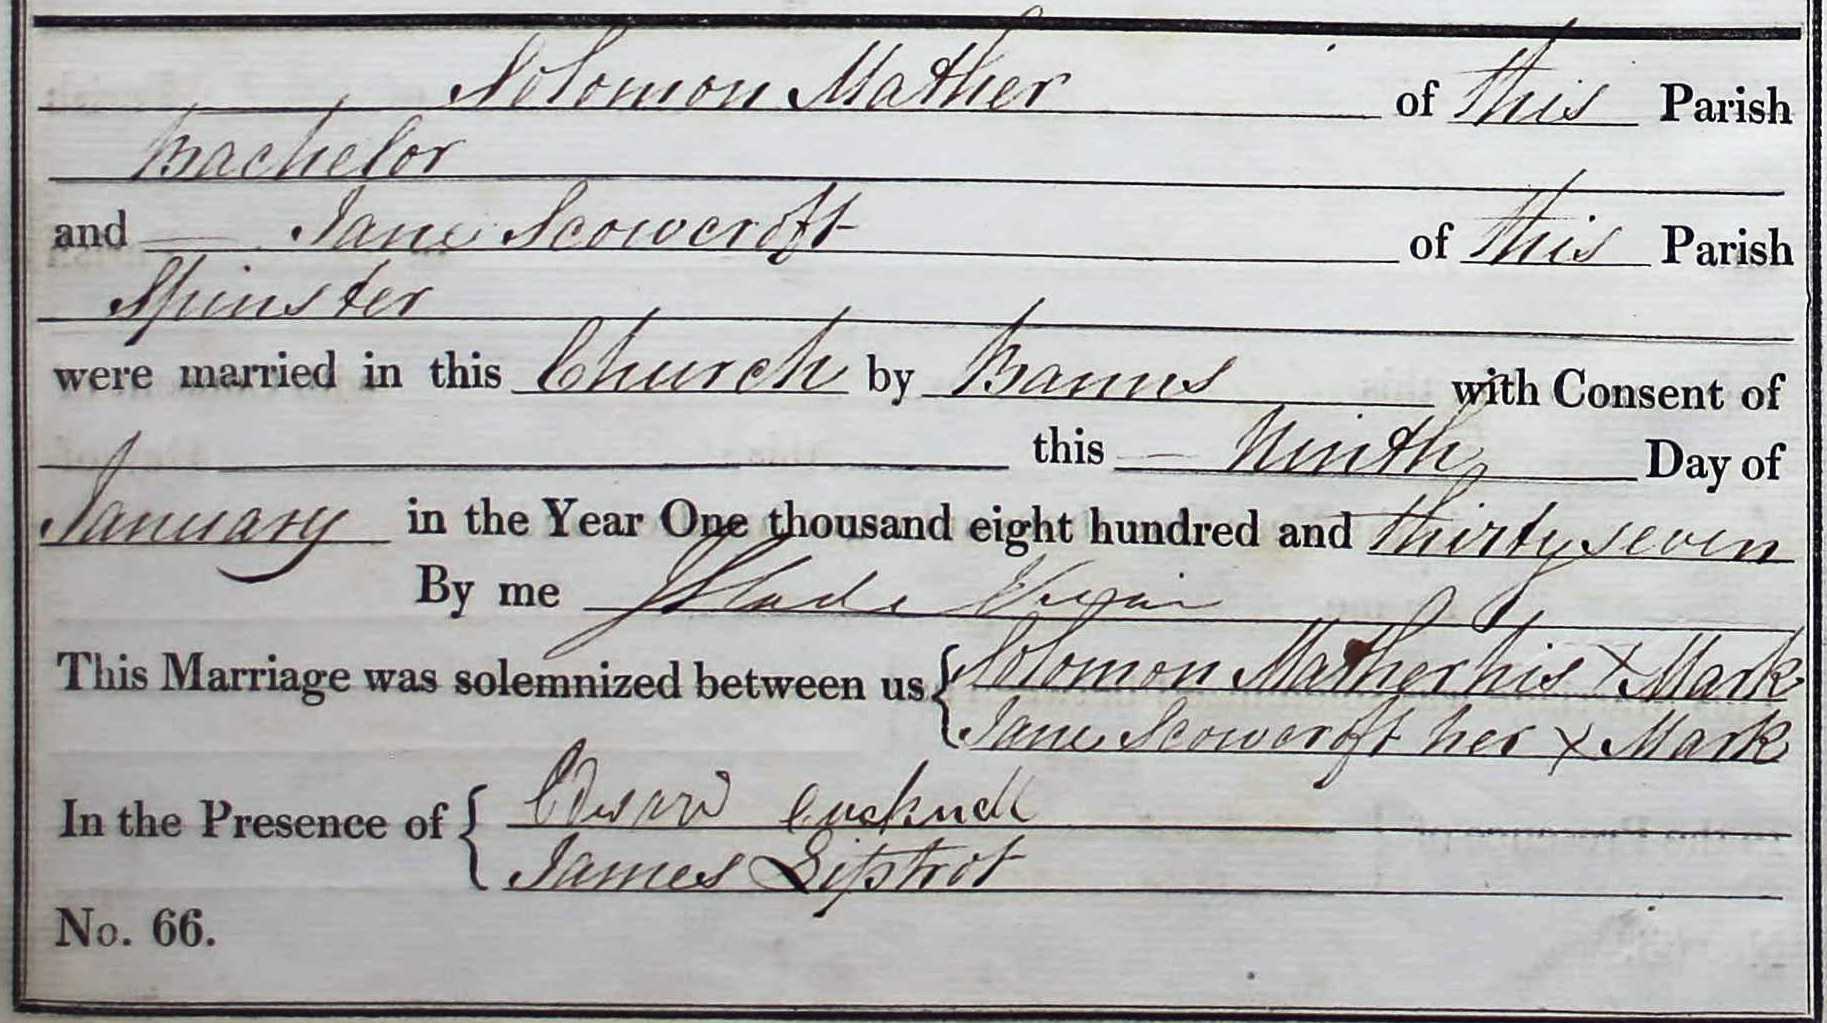 Solomon Mather of this Parish
Bachelor
and Jane Scowcroft of this Parish
Spinster
were married in this Church by Banns with Consent of
this Ninth Day of
January in the Year One thousand eight hundred and thirty seven
By me J Slade Vicar
This Marriage was solemnized between us { Solomon Mather his X Mark
Jane Scowcroft her X Mark
In the Presence of { Edward
James Liptrot
No. 66.